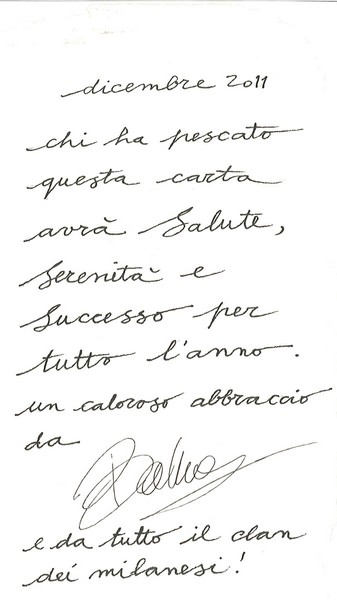 dicembre 2011
chi ha pescato
questa carta
avrà Salute,
Serenità e
Successo per
tutto l'anno.
un caloroso abbraccio
da
e da tutto il clan
dei milanesi!